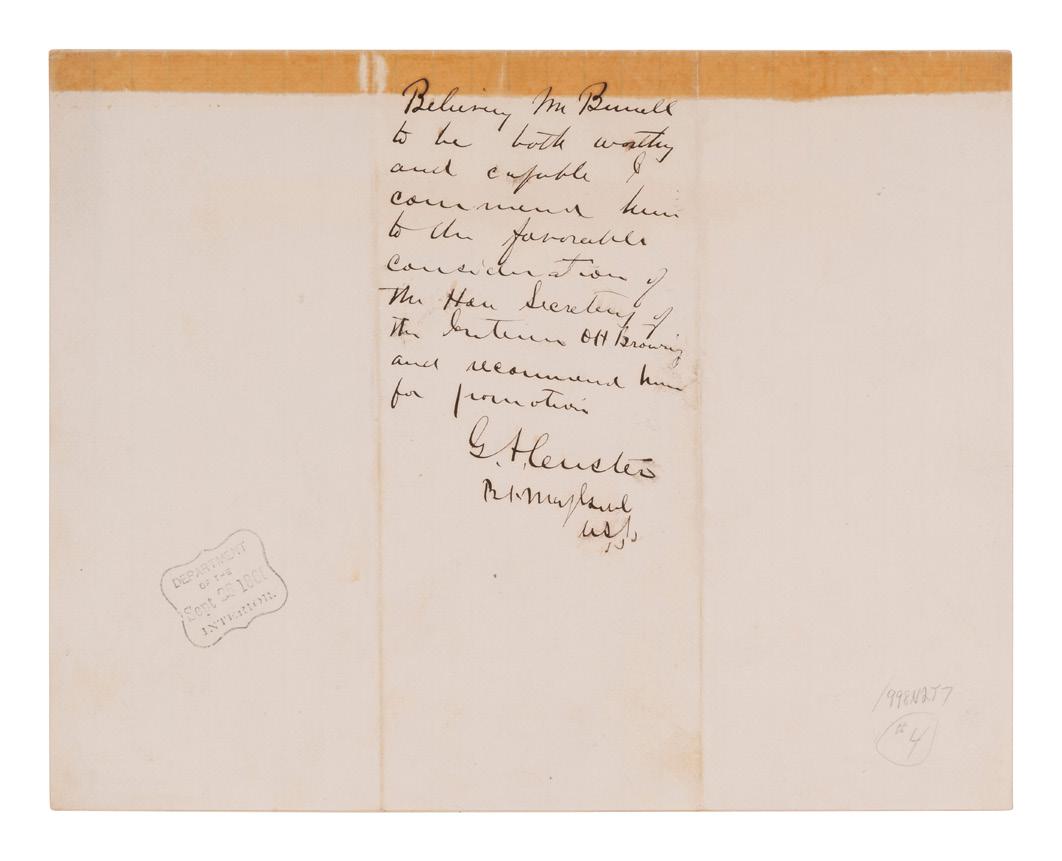 Believing Mr Burrell
to be both worthy
and capable I
commend him
to the favorable
consideration of
the Hon Secretary of
the Interior OH Browning
and recommend him
for promotion
G. A. Custer
Bt Maj Genl
USA
DEPARTMENT
OF THE
Sept 28 186
INTERIOR.
1998N2T7
#4